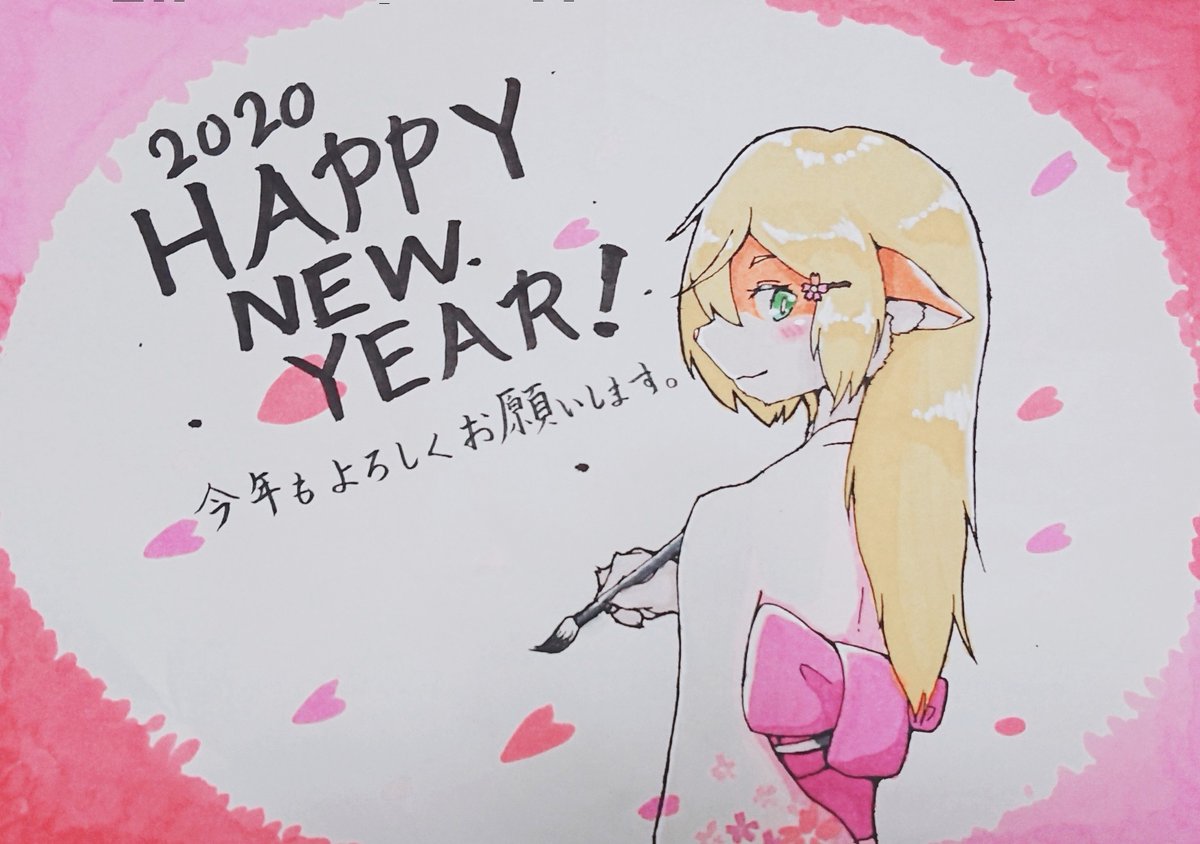 2020
HAPPY
NEW.
YEAR!
今年もよろしくお願いします。